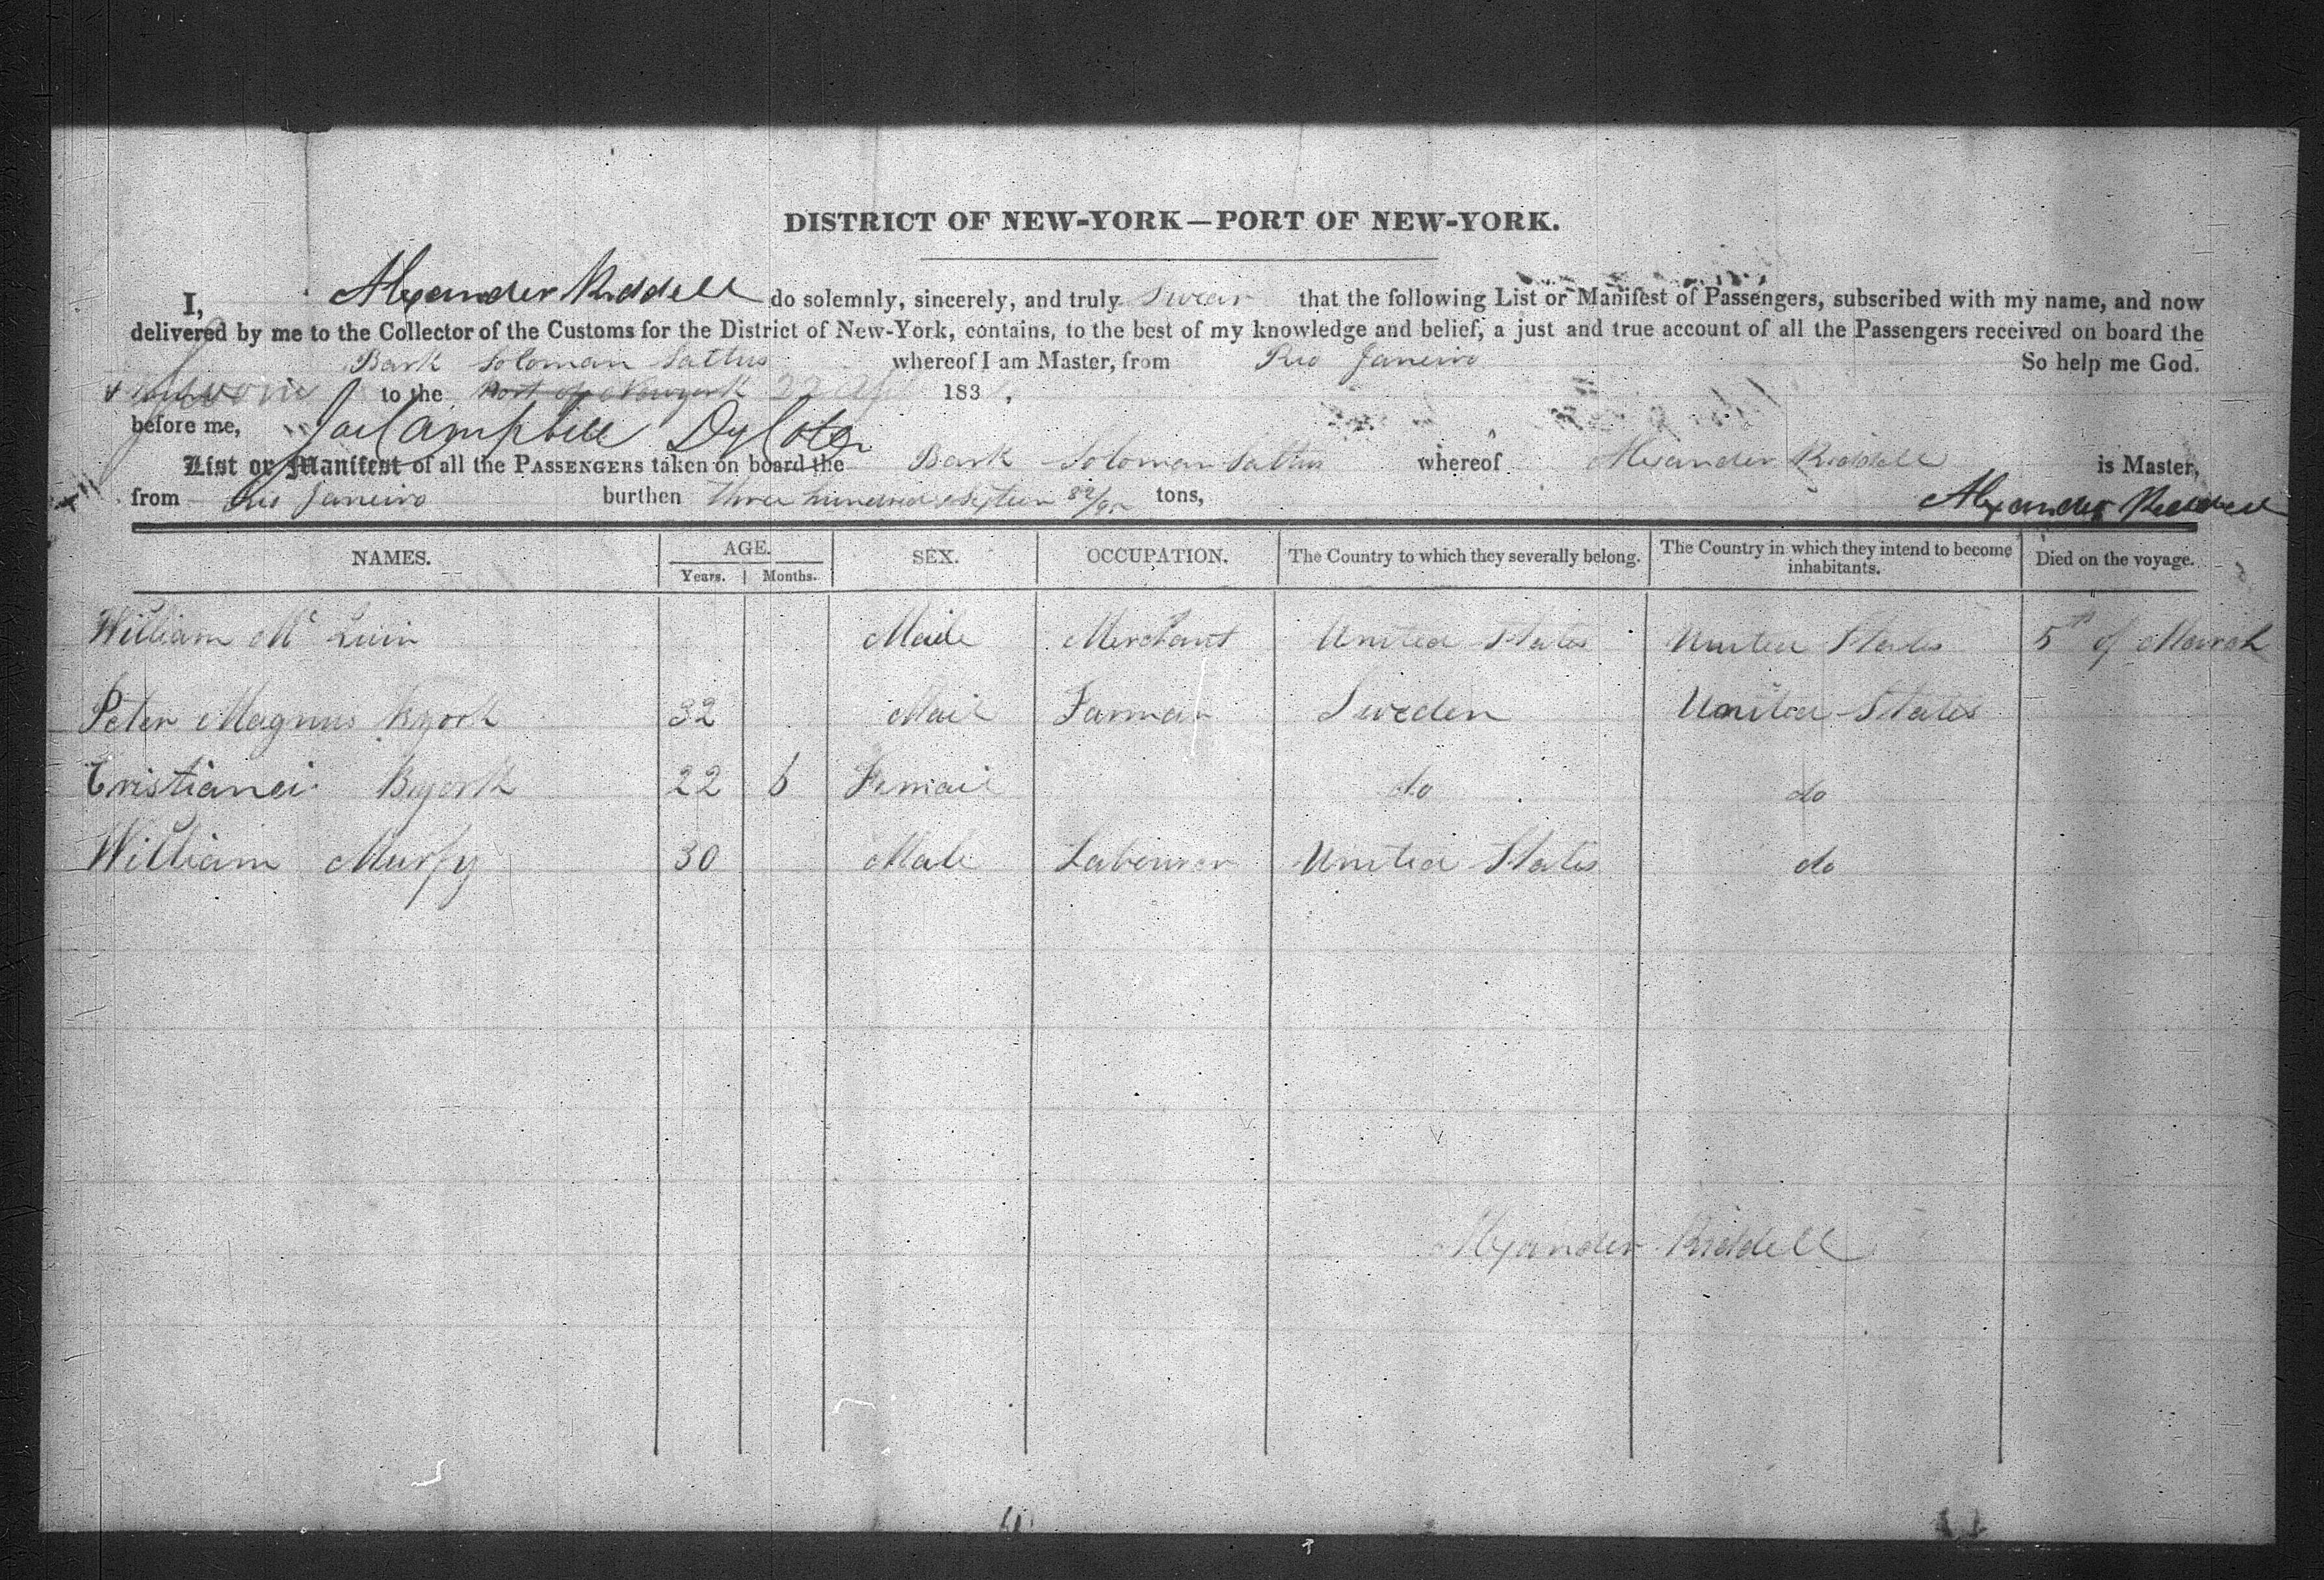 DISTRICT OF NEW-YORK—PORT OF NEW-YORK.
I, Alexander Riddell do solemnly, sincerely, and truly swear that the following List or Manifest of Passengers, subscribed with my name, and now
delivered by me to the Collector of the Customs for the District of New-York, contains, to the best of my knowledge and belief, a just and true account of all the Passengers received on board the
Bark Soloman Saltus whereof I am Master, from Rio Janeiro So help me God.
Sworn to the Port of Newyork 22 183
before me, Campbell Dy
List or Manifest of all the PASSENGERS taken on board the Bark Soloman Saltus whereof Alexander Riddell is Master,
from Rio Janeiro burthen three hundred sixteen 82/95 tons, Alexander Riddell
NAMES. AGE. SEX. OCCUPATION. The Country to which they severally belong. The Country in which they intend to become inhabitants. Died on the voyage.
Years. Months.
William Mc Male Merchant United States United States 5th of March
Peter Magnus Byork 32 Mail Farmar Sweden United States
Cristianei Byork 22 6 Femail do do
William Murfy 30 Male Labourer United States do
Alexander Riddell